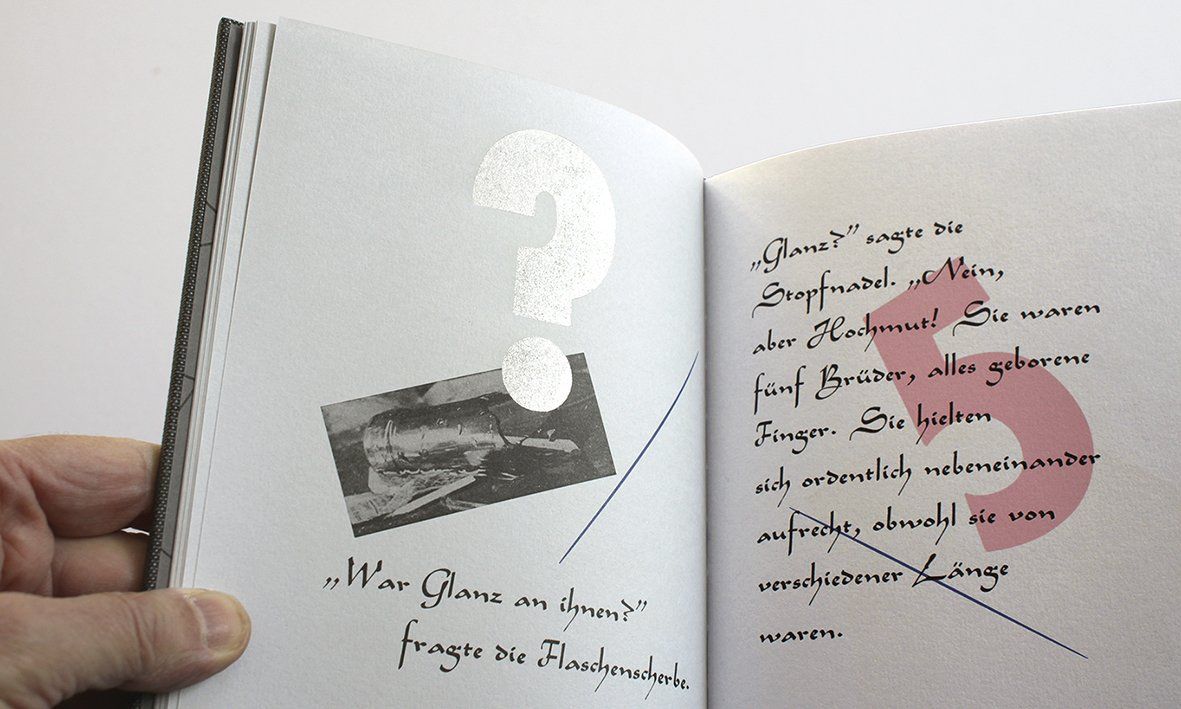 ?
„War Glanz an ihnen?”
fragte die Flaschenscherbe.
5
„Glanz?” sagte die
Stopfnadel. „Nein,
aber Hochmut! Sie waren
fünf Brüder, alles geborene
Finger. Sie hielten
sich ordentlich nebeneinander
aufrecht, obwohl sie von
verschiedener Länge
waren.